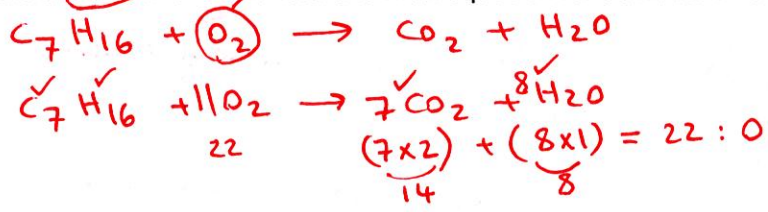 C₇H₁₆ + O₂ → CO₂ + H₂O
C₇H₁₆ + 11O₂ → 7CO₂ + 8H₂O
22 (7×2) + (8×1) = 22 : O
14 8